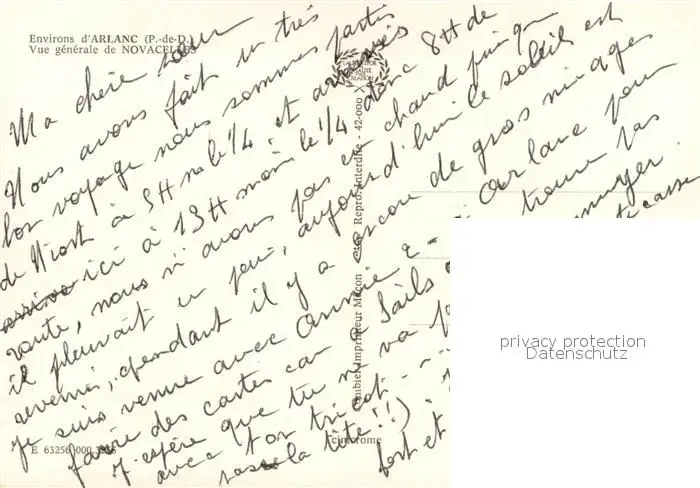 Environs d'ARLANC (P.-de-D.)
Vue générale de NOVACELLES
Ma chère sœur
Nous avons fait un très
bon voyage nous sommes partis
de Niort à 5H
ici à 13H moins le 1/4 donc 8H de
route, nous n'avons pas eu chaud puisque
il pleuvait un peu, aujourd'hui le soleil est
revenu, cependant il y a encore de gros nuages
je suis venue avec Annie à Arlanc pour
faire des cartes car à Sails trouve pas
J'espère que tu ne va pas ennuyer.
avec ton tricot te casse
la tête!!)
fort et
Combier Imprimeur Mâcon Repro. Interdite - 42-000
cim
E 63256 000
privacy protection
Datenschutz